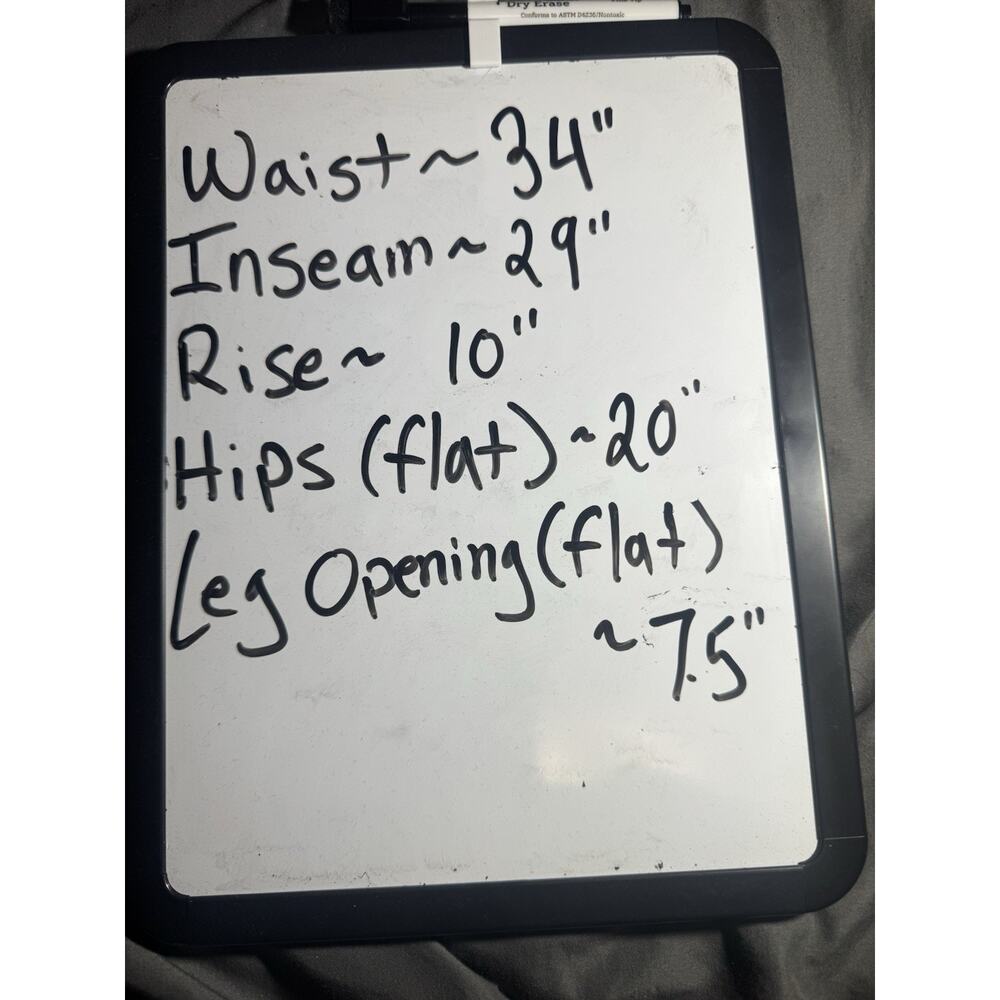 Dry Erase
Conforms to ASTM D4236/Nontoxic
Waist ~ 34"
Inseam ~ 29"
Rise ~ 10"
Hips (flat) ~ 20"
Leg Opening (flat)
~ 7.5"